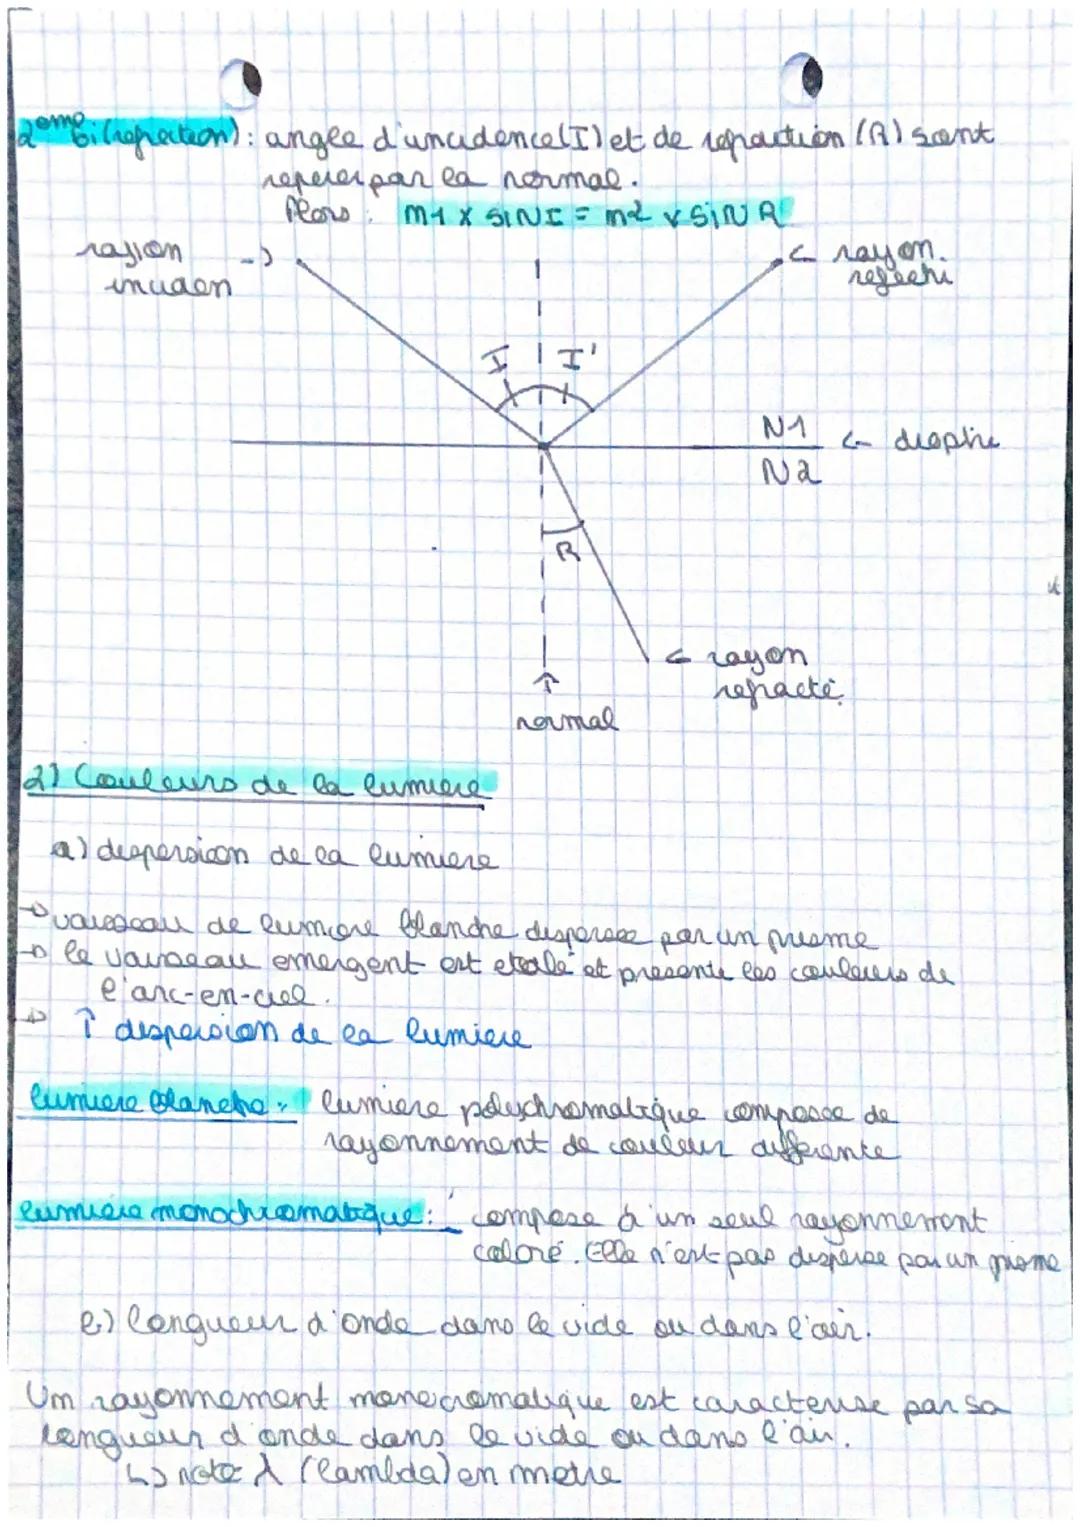 2eme loi (refraction) : angle d'incidence (I) et de refraction (R) sont
reperer par la normal.
Alors : n1 x SIN I = n2 x SIN R
rayon incident ->
<- rayon reflechi
I I'
N1
<- dioptre
N2
R
<- rayon
refracté
↑
normal
2) Couleurs de la lumiere
a) dispersion de la lumiere
-> vaisseau de lumiere blanche dispersee par un prisme
-> le vaisseau emergent est etalé et presente les couleurs de
l'arc-en-ciel.
-> ↑ dispersion de la lumiere
lumiere blanche : lumiere polychromatique composee de
rayonnement de couleur differente
lumiere monochromatique : compose d'un seul rayonnement
coloré. Elle n'est pas disperse par un prisme
b) longueur d'onde dans le vide ou dans l'air.
Un rayonnement monocromatique est caracterise par sa
longueur d'onde dans le vide ou dans l'air.
↳ note λ (lambda) en metre